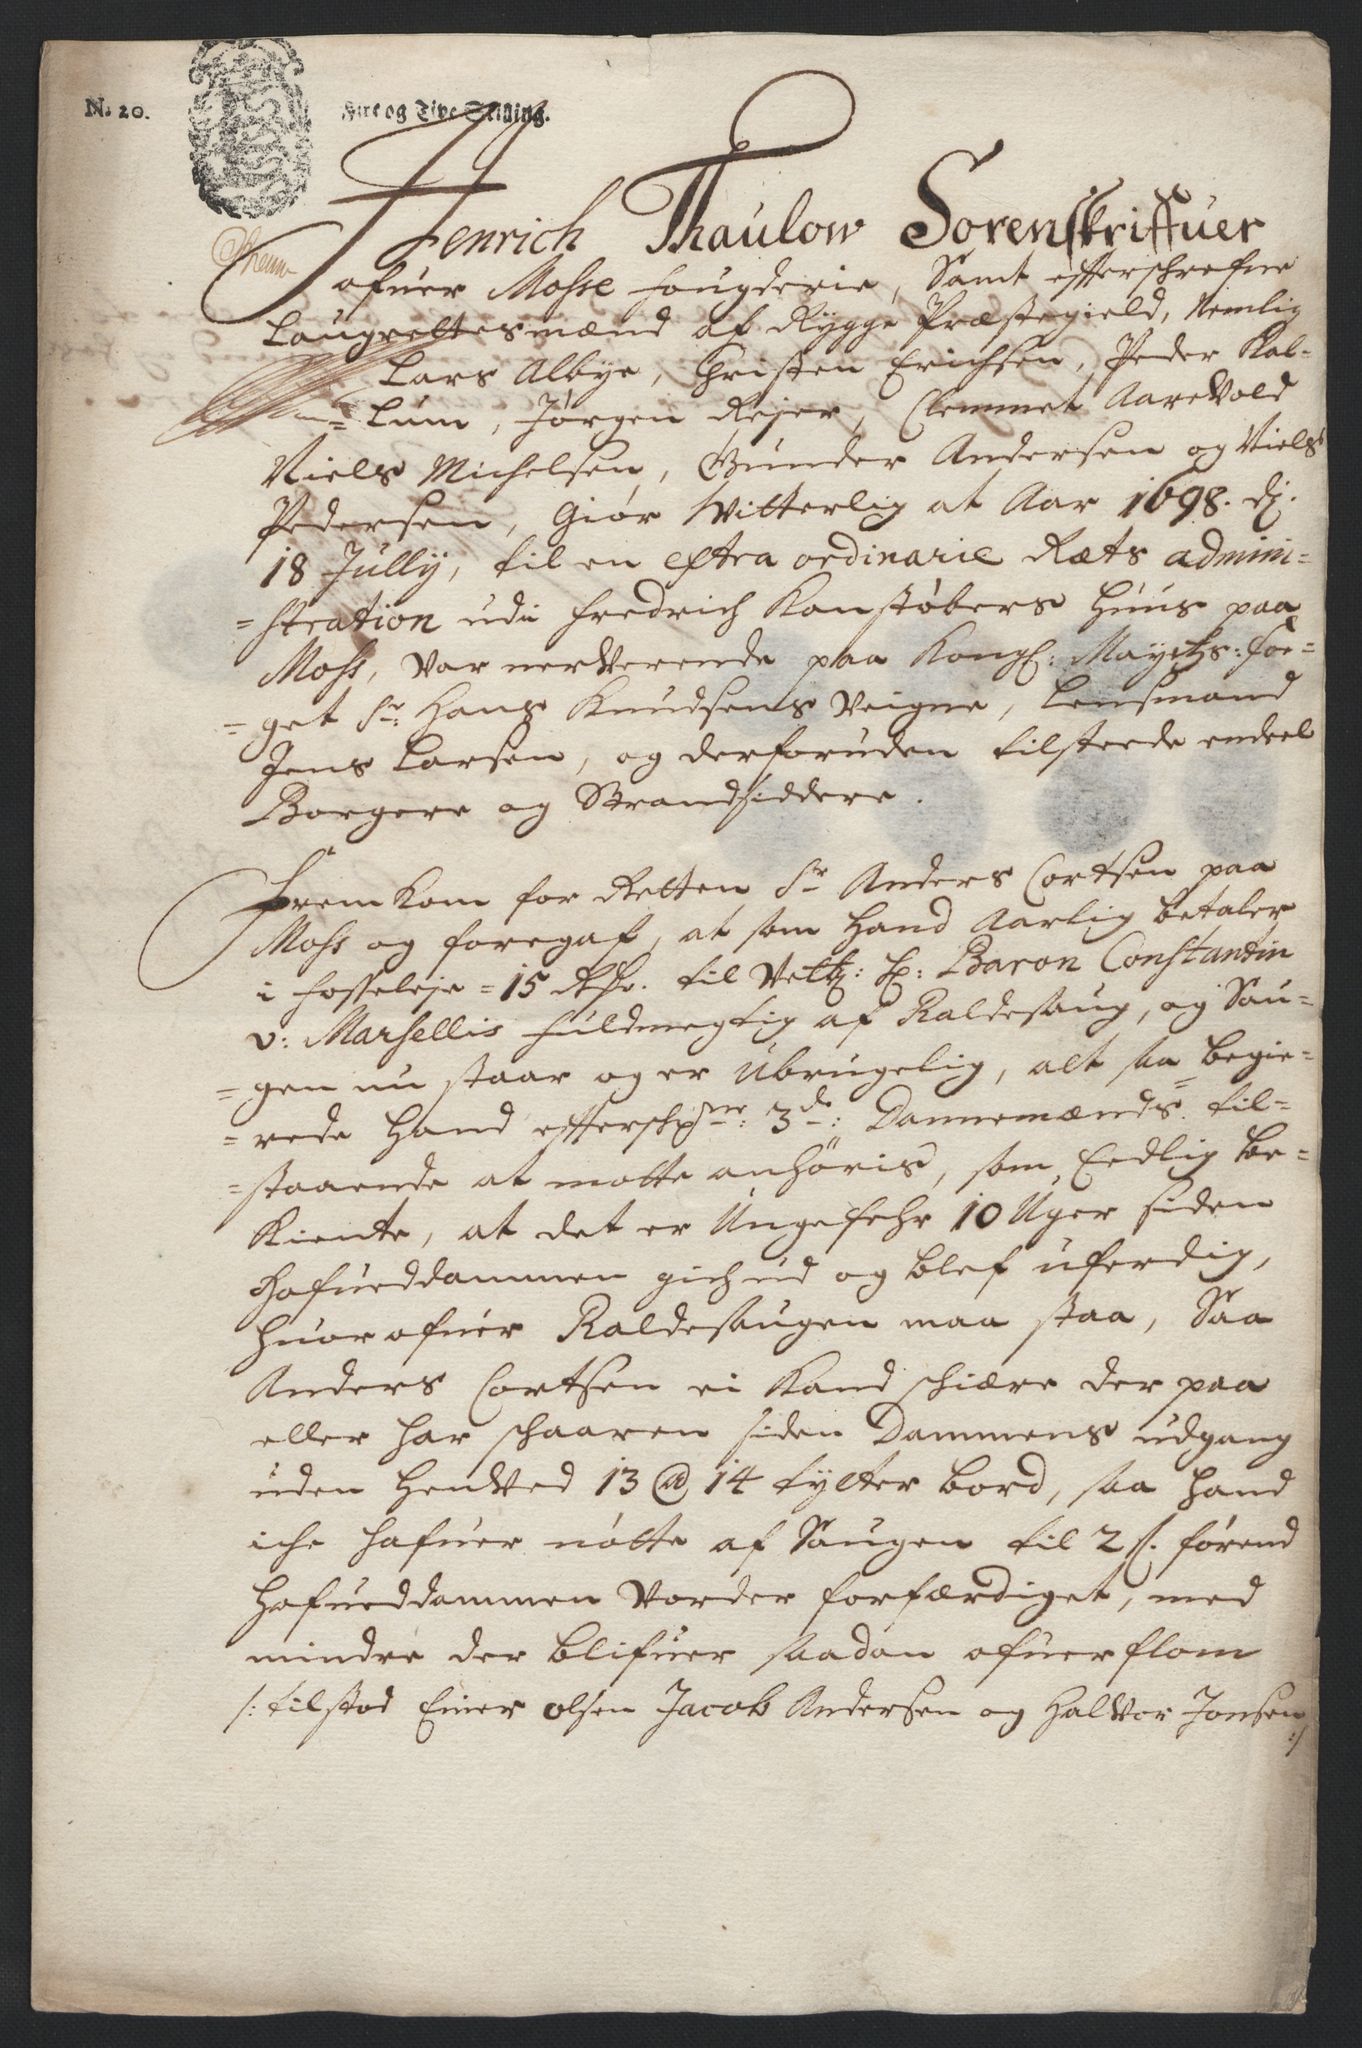 N. 20. Fire og Tive Skilling.
Henrich Thaulow Sorenskriffuer
ofuer Mosse fougderie, Samt efterschrefne
Laugrettesmænd af Rygge Præstegield, Nemlig
Lars Albye, Christen Erichsen, Peder Kal-
=lum, Jørgen Rejer, Clemmet Aarevold
Niels Michelsen, Gunder Andersen og Niels
Pedersen, Giør Witterlig at Aar 1698. dj.
18 Jullij, til en extra ordinarie Ræts admini-
=stration udi Fredrich Kanstøbers Huus paa
Moss, Var nerverende paa Kongl: Mayetz: foe-
=get Sr: Hans Knudsens Veigne, Lensmand
Jens Larsen, og derforuden tilsteede endeel
Borgere og Strandsiddere.
Fremkom for Retten Sr Anders Cortsen paa
Moss og foregaf, at som hand Aarlig betaler
i fosseleje = 15 Rdr. til Velb: H: Baron Constantin
v: Marsellis fuldmegtig af Kaldesaug, og Sau-
=gen nu staar og er Ubrugelig, alt saa begie-
=rede hand efterschne: 3de: Dannemænds til-
=staaende at motte anhöris, som Eedlig be-
Kiente, at det er Ungefehr 10 Uger siden
Hafueddammen gich ud og blef uferdig,
huor ofuer Kaldesaugen maa staa, Saa
Anders Cortsen ei Kand schiære der paa
eller har schaaren siden Dammens udgang
uden henved 13 @ 14 tylter bord, saa hand
iche hafuer nøtte af Saugen til 2 s. førend
Hafueddammen Vorder forfærdiget, med
mindre der blifuer saadan ofuerflom
/: tilstod Einer olsen Jacob Andersen og Halvor Jonsen :/